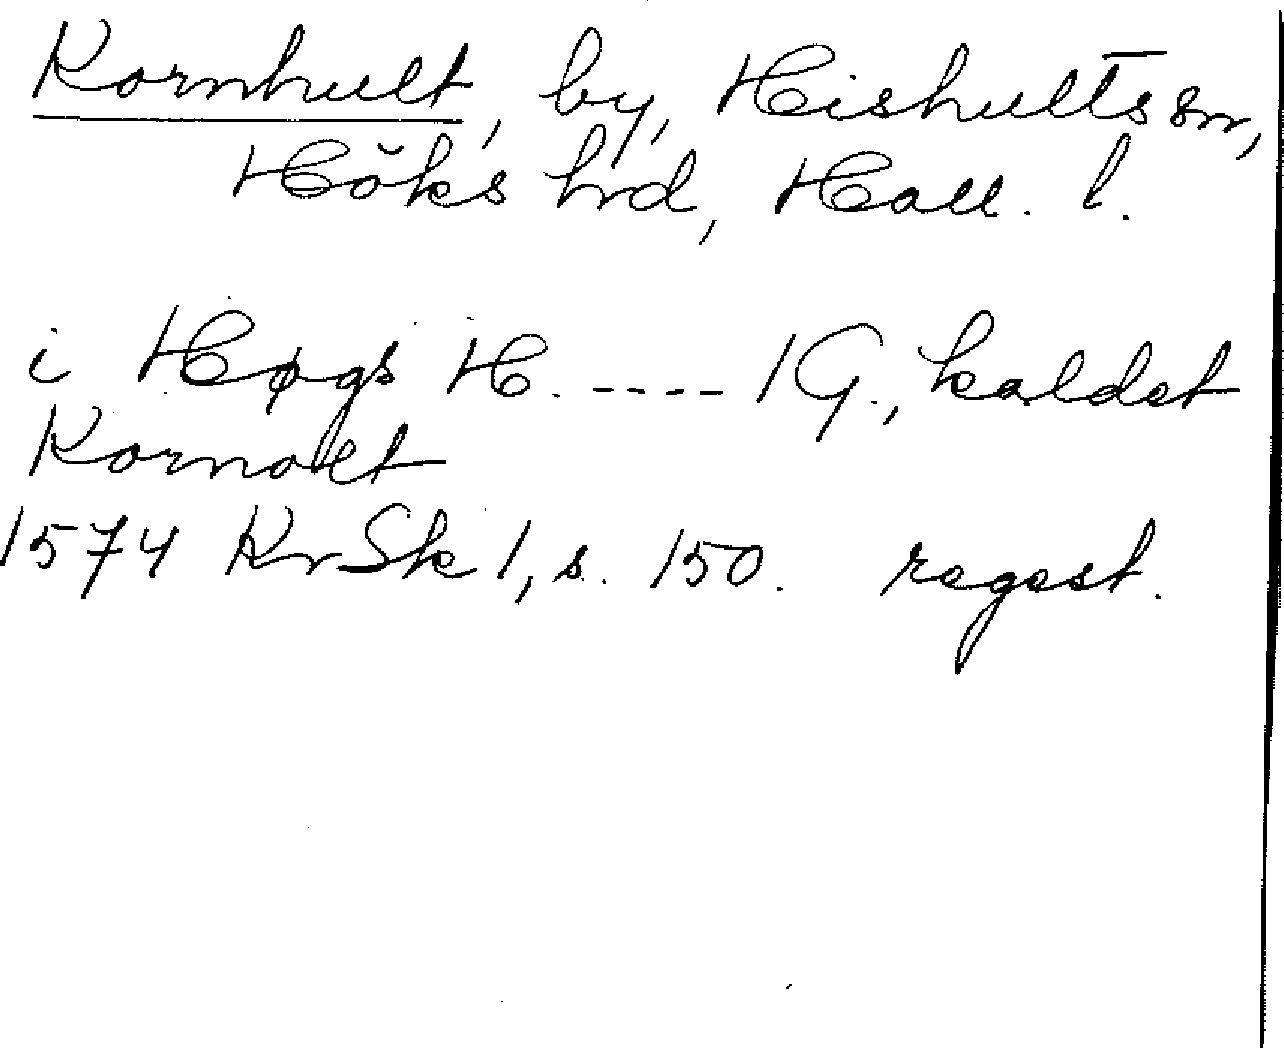 Kornhult, by, Hishults sn,
Höks hrd, Hall. l.
i Høgs H. ---- 1 G., kaldet
Kornolt
1574 KrSk 1, s. 150. regest.